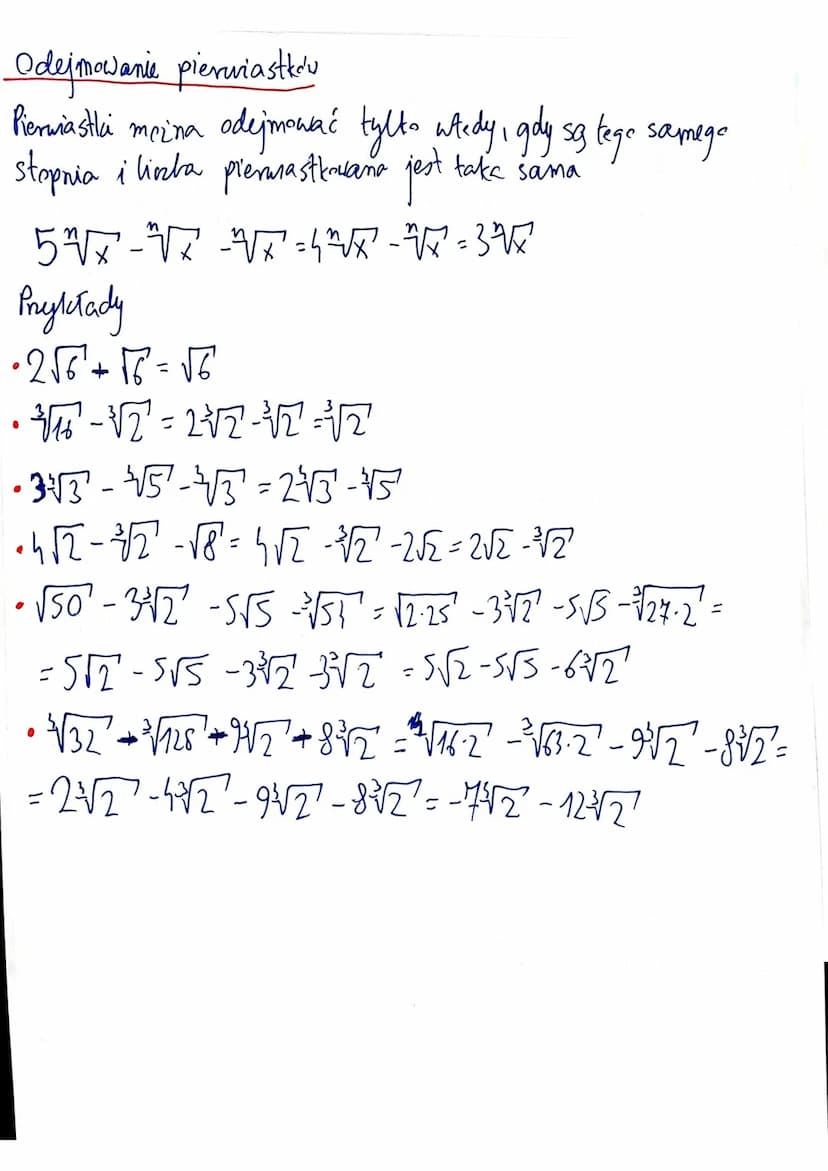 Odejmowanie pierwiastków
Pierwiastki można odejmować tylko wtedy, gdy są tego samego
stopnia i liczba pierwiastkowana jest taka sama
5ⁿ√x - ⁿ√x - ⁿ√x = 4ⁿ√x - ⁿ√x = 3ⁿ√x
Przykłady
• 2√6 + √6 = √6
• ³√16 - ³√2 = 2³√2 - ³√2 = ³√2
• 3⁴√3 - ⁴√5 - ⁴√3 = 2⁴√3 - ⁴√5
• 4√2 - ³√2 - √8 = 4√2 - ³√2 - 2√2 = 2√2 - ³√2
• √50 - 3³√2 - 5√5 - ³√54 = √2·25 - 3³√2 - 5√5 - ³√27·2 =
= 5√2 - 5√5 - 3³√2 - 3³√2 = 5√2 - 5√5 - 6³√2
• ⁴√32 + ³√128 + 9⁴√2 + 8³√2 = ⁴√16·2 - ³√63·2 - 9⁴√2 - 8³√2 =
= 2⁴√2 - 4³√2 - 9⁴√2 - 8³√2 = -7⁴√2 - 12³√2